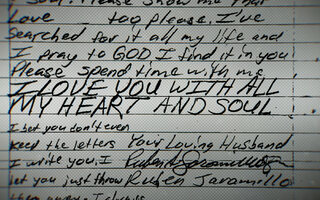 Please show me that
Love too please. I've
Searched for it all my life and
I pray to GOD I find it in you
Please spend time with me
I LOVE YOU WITH ALL
MY HEART AND SOUL
I bet you don't even
keep the letters Your Loving Husband
I write you. I
let you just throw Rubén Jaramillo